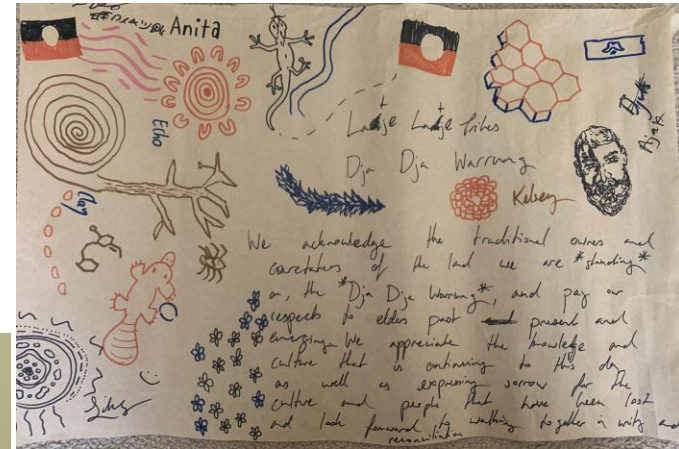 Anita
Echo
Latje Latje Tribes
Dja Dja Warrung
Kelsey
Clay
We acknowledge the traditional ownes and
caretakers of the land we are *standing*
on, the *Dja Dja Warrung*, and pay our
respects to elders past present and
emerging. We appreciate the knowledge and
culture that is continuing to this day
as well as expressing sorrow for the
culture and people that have been lost
and look forward to walking together in unity and
reconciliation